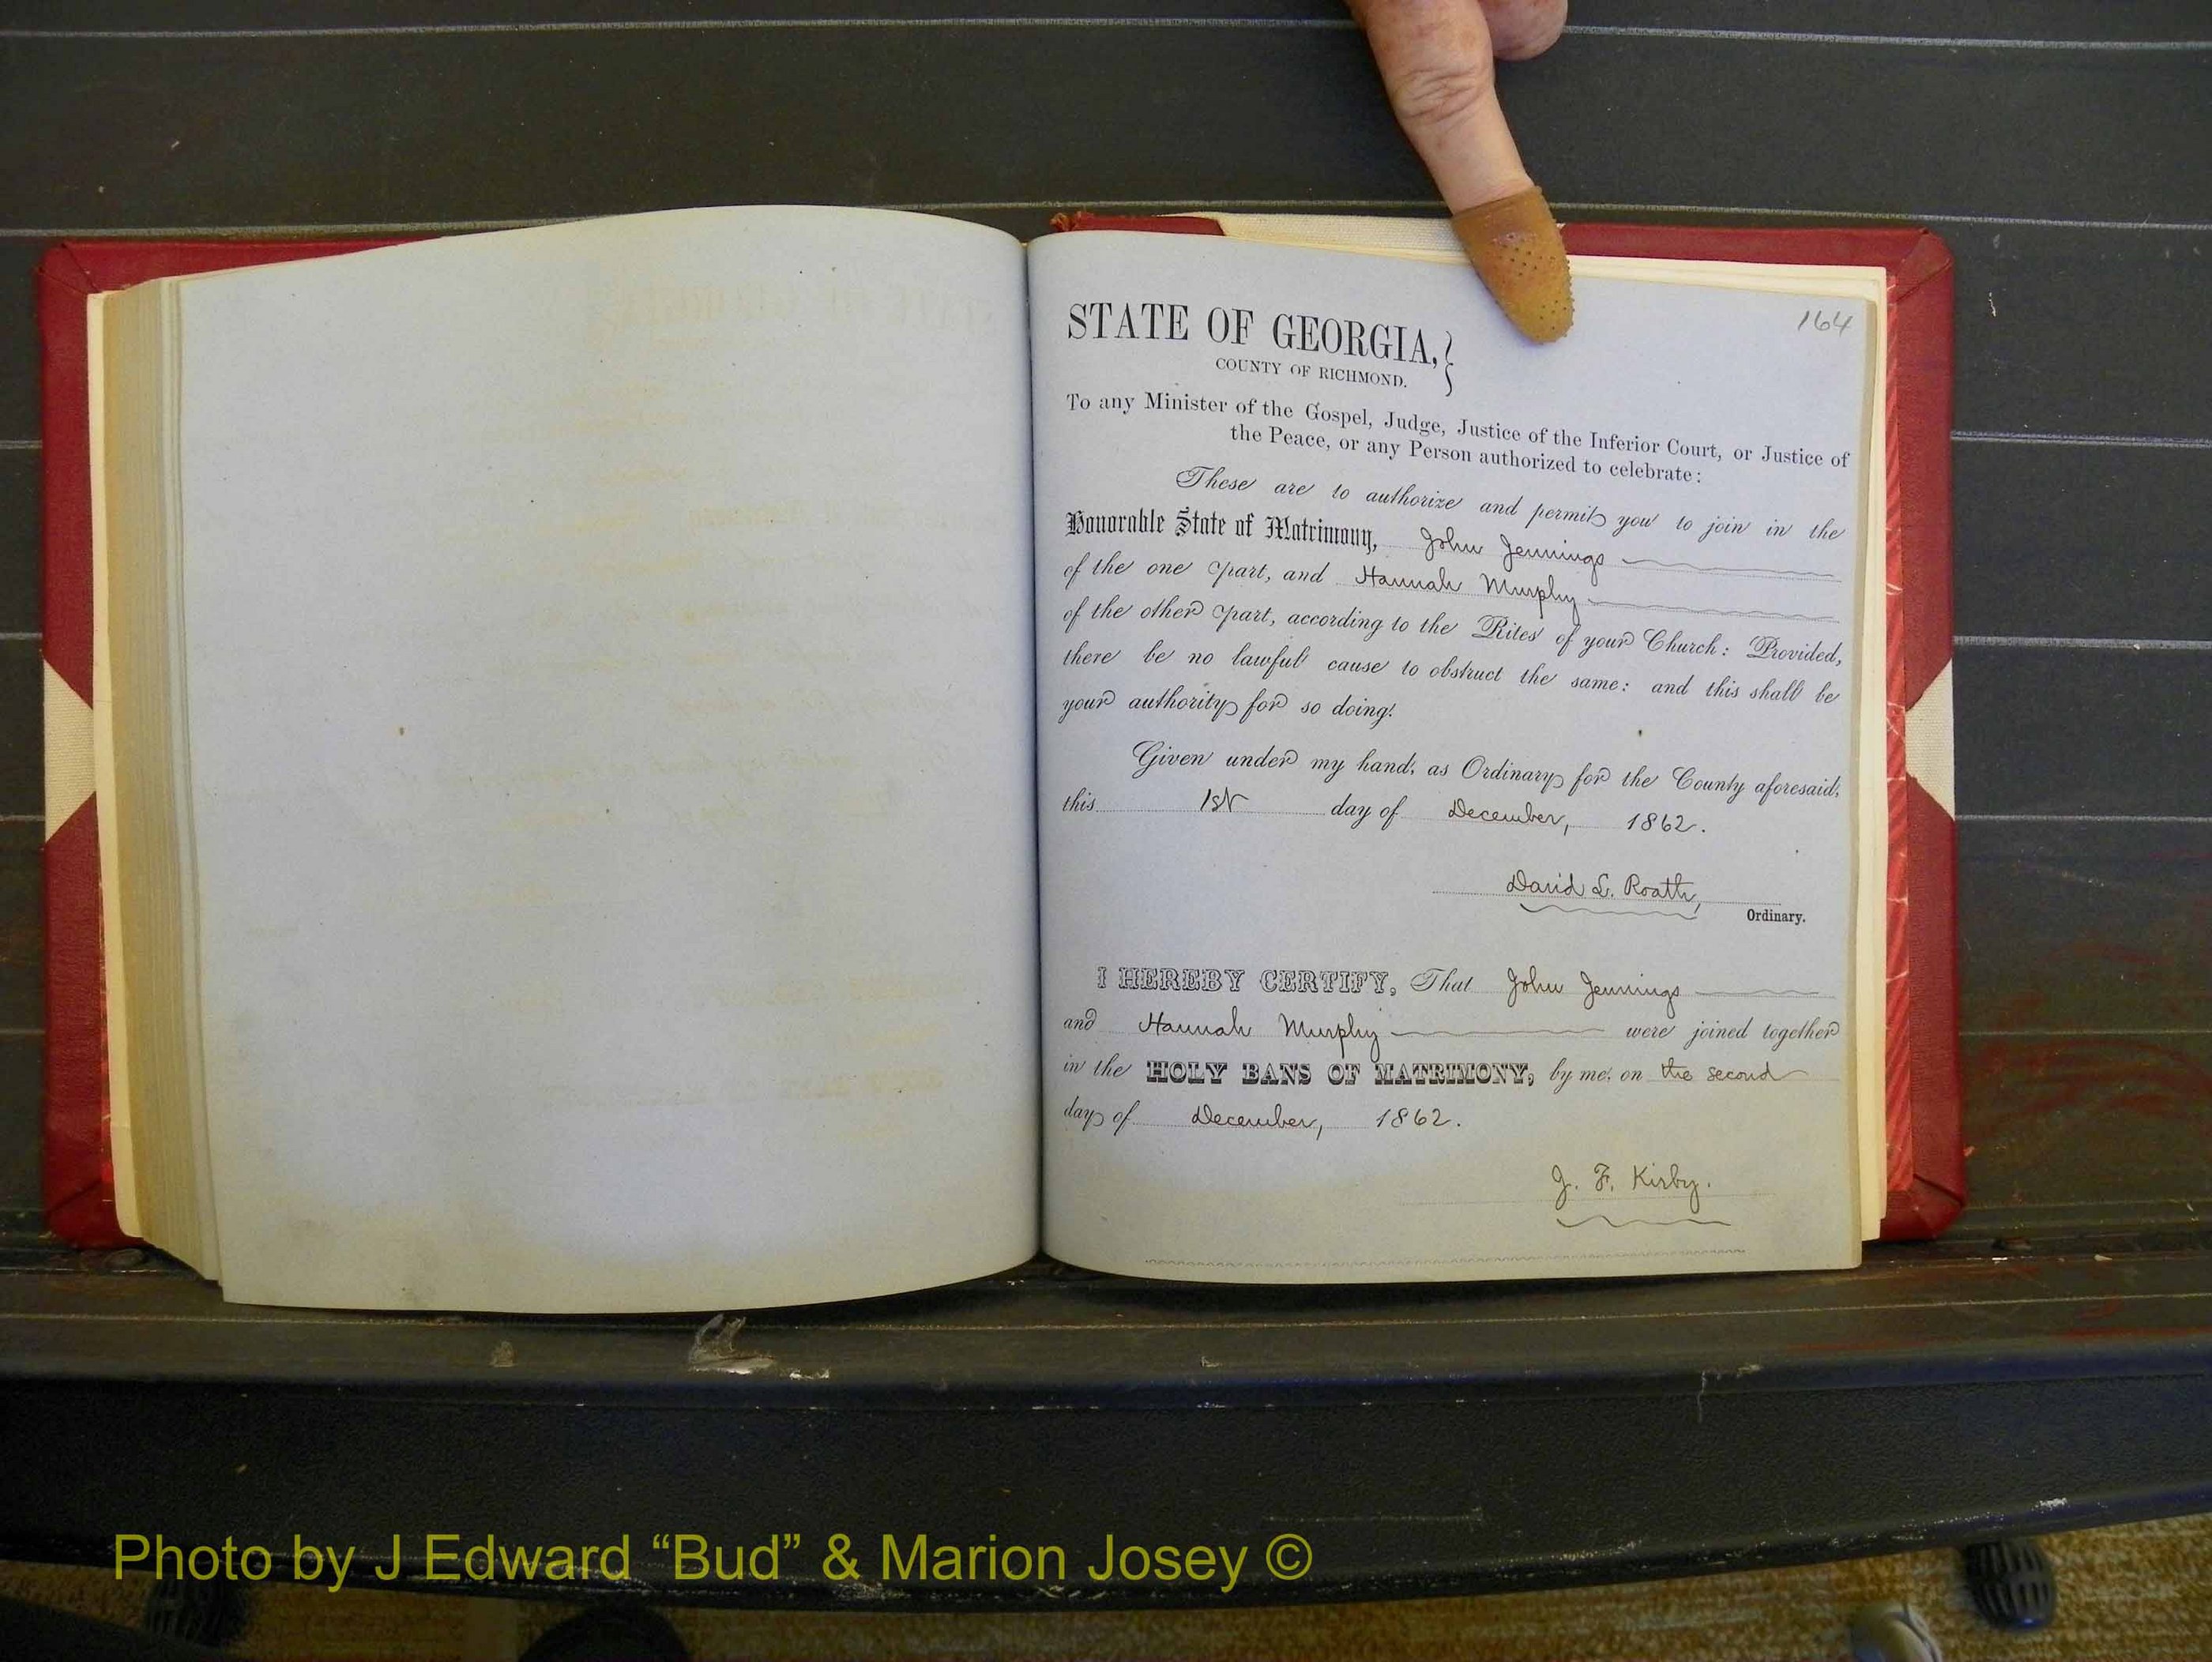 164
STATE OF GEORGIA,
COUNTY OF RICHMOND.
To any Minister of the Gospel, Judge, Justice of the Inferior Court, or Justice of
the Peace, or any Person authorized to celebrate:
These are to authorize and permit you to join in the
Honorable State of Matrimony, John Jennings
of the one part, and Hannah Murphy
of the other part, according to the Rites of your Church: Provided,
there be no lawful cause to obstruct the same: and this shall be
your authority for so doing.
Given under my hand, as Ordinary for the County aforesaid,
this 1st day of December, 1862.
David L. Roath,
Ordinary.
I HEREBY CERTIFY, That John Jennings
and Hannah Murphy were joined together
in the HOLY BANS OF MATRIMONY, by me, on the second
day of December, 1862.
J. F. Kirby.
Photo by J Edward “Bud” & Marion Josey ©